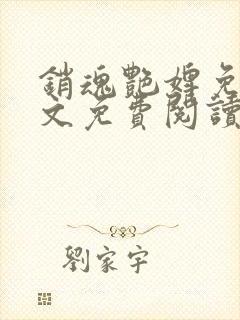 銷魂艷婢免
文免費閱讀
劉家宇